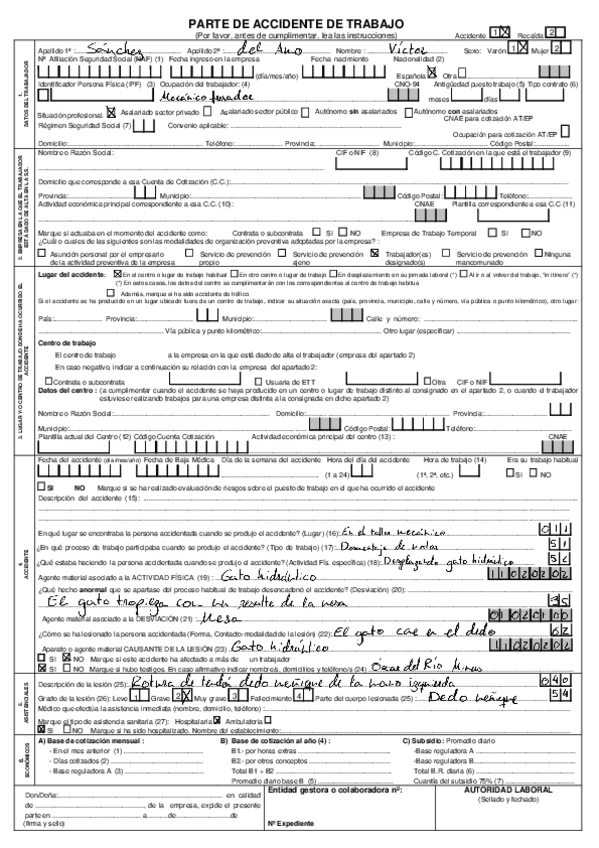 PARTE DE ACCIDENTE DE TRABAJO
(Por favor, antes de cumplimentar, lea las instrucciones) Accidente 1 X Recaída 2
1. DATOS DEL TRABAJADOR
Apellido 1º : Sánchez Apellido 2º : del Amo Nombre : Víctor Sexo: Varón 1 X Mujer 2
Nº Afiliación Seguridad Social (NAF) (1) Fecha ingreso en la empresa Fecha nacimiento Nacionalidad (2)
(día/mes/año) Española X Otra
Identificador Persona Física (IPF) (3) Ocupación del trabajador: (4) CNO-94 Antigüedad puesto trabajo (5) Tipo contrato (6)
Mecánico meses días
Situación profesional X Asalariado sector privado Asalariado sector público Autónomo sin asalariados Autónomo con asalariados
CNAE para cotización AT/EP
Régimen Seguridad Social (7) Convenio aplicable:
Ocupación para cotización AT/EP
Domicilio: Teléfono: Provincia: Municipio: Código Postal:
2. EMPRESA EN LA QUE EL TRABAJADOR ESTÁ DADO DE ALTA EN LA S.S.
Nombre o Razón Social: CIF o NIF (8) Código C. Cotización en la que está el trabajador (9)
Domicilio que corresponde a esa Cuenta de Cotización (C.C.):
Provincia: Municipio: Código Postal: Teléfono:
Actividad económica principal correspondiente a esa C.C. (10): CNAE Plantilla correspondiente a esa C.C (11)
Marque si actuaba en el momento del accidente como: Contrata o subcontrata SI NO Empresa de Trabajo Temporal SI NO
¿Cuál o cuales de las siguientes son las modalidades de organización preventiva adoptadas por la empresa? :
Asunción personal por el empresario de la actividad preventiva de la empresa Servicio de prevención propio Servicio de prevención ajeno X Trabajador(es) designado(s) Servicio de prevención mancomunado Ninguna
3. LUGAR Y/O CENTRO DE TRABAJO DONDE HA OCURRIDO EL ACCIDENTE
Lugar del accidente: X En el centro o lugar de trabajo habitual En otro centro o lugar de trabajo En desplazamiento en su jornada laboral (*) Al ir o al volver del trabajo, "in itinere" (*)
(*) En estos casos, los datos del centro se cumplimentarán con los correspondientes al centro de trabajo habitual
Además, marque si ha sido accidente de tráfico
Si el accidente se ha producido en un lugar ubicado fuera de un centro de trabajo, indicar su situación exacta (país, provincia, municipio, calle y número, vía pública o punto kilométrico), otro lugar:
País: Provincia: Municipio: Calle y número:
Vía pública y punto kilométrico: Otro lugar (especificar)
Centro de trabajo
El centro de trabajo a la empresa en la que está dado de alta el trabajador (empresa del apartado 2)
En caso negativo, indicar a continuación su relación con la empresa del apartado 2:
Contrata o subcontrata Usuaria de ETT Otra CIF o NIF
Datos del centro : (a cumplimentar cuando el accidente se haya producido en un centro o lugar de trabajo distinto al consignado en el apartado 2, o cuando el trabajador
estuviese realizando trabajos para una empresa distinta a la consignada en dicho apartado 2)
Nombre o Razón Social: Domicilio: Provincia:
Municipio: Código Postal: Teléfono:
Plantilla actual del Centro (12) Código Cuenta Cotización Actividad económica principal del centro (13) : CNAE
4. ACCIDENTE
Fecha del accidente (día/mes/año) Fecha de Baja Médica Día de la semana del accidente Hora del día del accidente Hora de trabajo (14) Era su trabajo habitual
(1 a 24) (1ª, 2ª, etc.) SI NO
SI NO Marque si se ha realizado evaluación de riesgos sobre el puesto de trabajo en el que ha ocurrido el accidente
Descripción del accidente (15) :
En qué lugar se encontraba la persona accidentada cuando se produjo el accidente? (Lugar) (16): En el taller mecánico 011
¿En qué proceso de trabajo participaba cuando se produjo el accidente? (Tipo de trabajo) (17): Desmontaje de motor 51
¿Qué estaba haciendo la persona accidentada cuando se produjo el accidente? (Actividad Fís. específica) (18): Desplazando gato hidráulico 52
Agente material asociado a la ACTIVIDAD FÍSICA (19) : Gato hidráulico 11020202
¿Qué hecho anormal que se apartase del proceso habitual de trabajo desencadenó el accidente? (Desviación) (20):
El gato tropieza con un resalte de la mesa 35
Agente material asociado a la DESVIACIÓN (21) : Mesa
¿Cómo se ha lesionado la persona accidentada (Forma, Contacto-modalidad de la lesión) (22): El gato cae en el dedo 62
Aparato o agente material CAUSANTE DE LA LESIÓN (23) Gato hidráulico 11020202
SI X NO Marque si este accidente ha afectado a más de un trabajador
X SI NO Marque si hubo testigos. En caso afirmativo indicar nombre/s, domicilios y teléfono/s (24) Óscar del Río
5. ASISTENCIALES
Descripción de la lesión (25): Rotura de tendón dedo meñique de la mano izquierda 040
Grado de la lesión (26): Leve 1 Grave 2 X Muy grave 3 Fallecimiento 4 Parte del cuerpo lesionada (25) : Dedo meñique 54
Médico que efectúa la asistencia inmediata (nombre, domicilio, teléfono) :
Marque el tipo de asistencia sanitaria (27): Hospitalaria X Ambulatoria
X SI NO Marque si ha sido hospitalizado. Nombre del establecimiento:
6. ECONÓMICOS
A) Base de cotización mensual : B) Base de cotización al año (4) : C) Subsidio: Promedio diario
- En el mes anterior (1) B1.- por horas extras -Base reguladora A
- Días cotizados (2) B2.- por otros conceptos -Base reguladora B
- Base reguladora A (3) Total B1 + B2 Total B.R. diaria (6)
Promedio diario base B (5) Cuantía del subsidio 75% (7)
Don/Doña: en calidad
de , de la empresa, expide el presente
parte en a de de
(firma y sello)
Entidad gestora o colaboradora nº:
Nº Expediente
AUTORIDAD LABORAL
(Sellado y fechado)